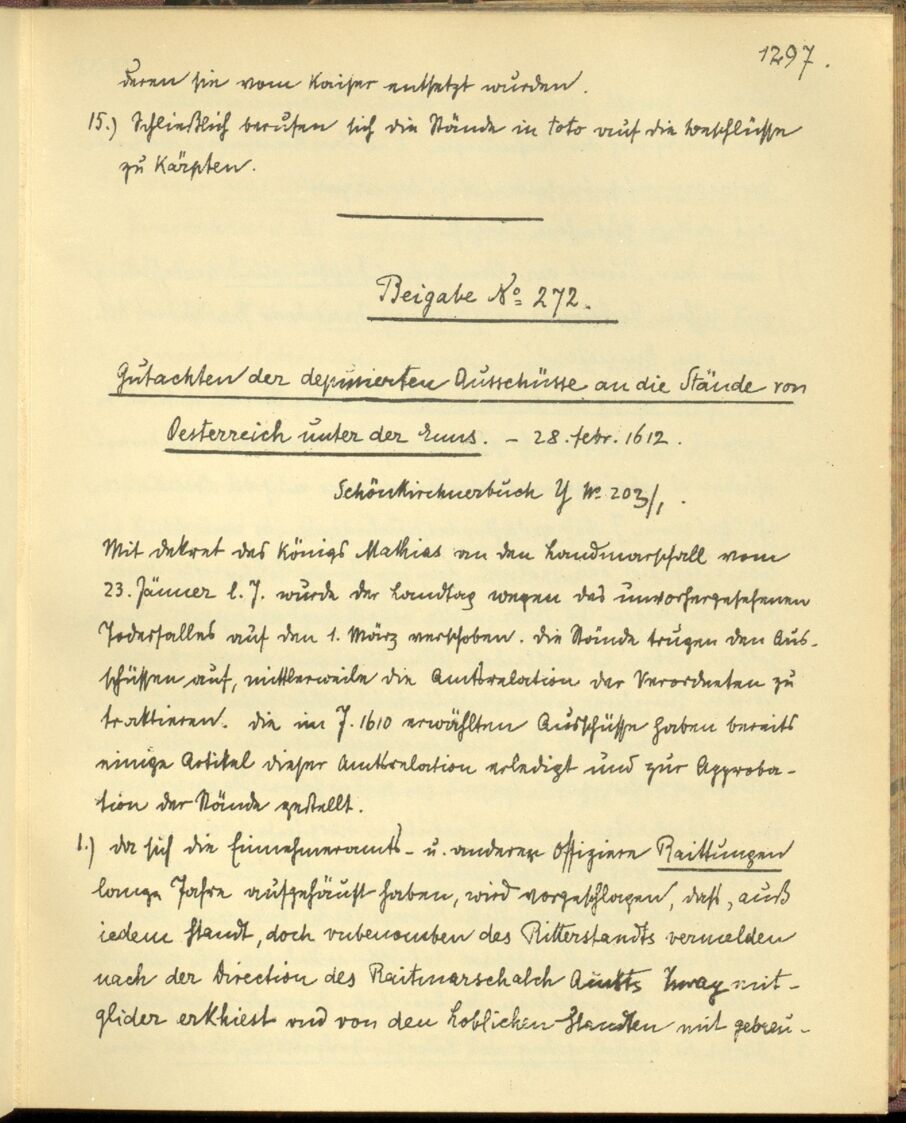 1297.
deren sie vom Kaiser entsetzt wurden.
15.) Schließlich berufen sich die Stände in toto auf die Beschlüsse
zu Kärpten.
Beigabe No 272.
Gutachten der deputierten Ausschüsse an die Stände von
Oesterreich unter der Enns. – 28. febr. 1612.
Schönkirchnerbuch Y No 203/1.
Mit Dekret des Königs Mathias an den Landmarschall vom
23. Jänner l. J. wurde der Landtag wegen des unvorhergesehenen
Todesfalles auf den 1. März verschoben. Die Stände trugen den Aus-
schüssen auf, mittlerweile die Amtsrelation der Verordneten zu
traktieren. Die im J. 1610 erwählten Ausschüsse haben bereits
einige Artikel dieser Amtsrelation erledigt und zur Approba-
tion der Stände gestellt.
1.) Da sich die Einnehmeramts- u. anderer Offiziere Raittungen
lange Jahre aufgehäuft haben, wird vorgeschlagen, daß „auß
iedem Standt, doch vnbenomben des Ritterstandts vermelden
nach der Direction des Raitmarschalch Ambts zway mit-
glider erkhiest vnd von den Loblichen Standten mit gebreu-